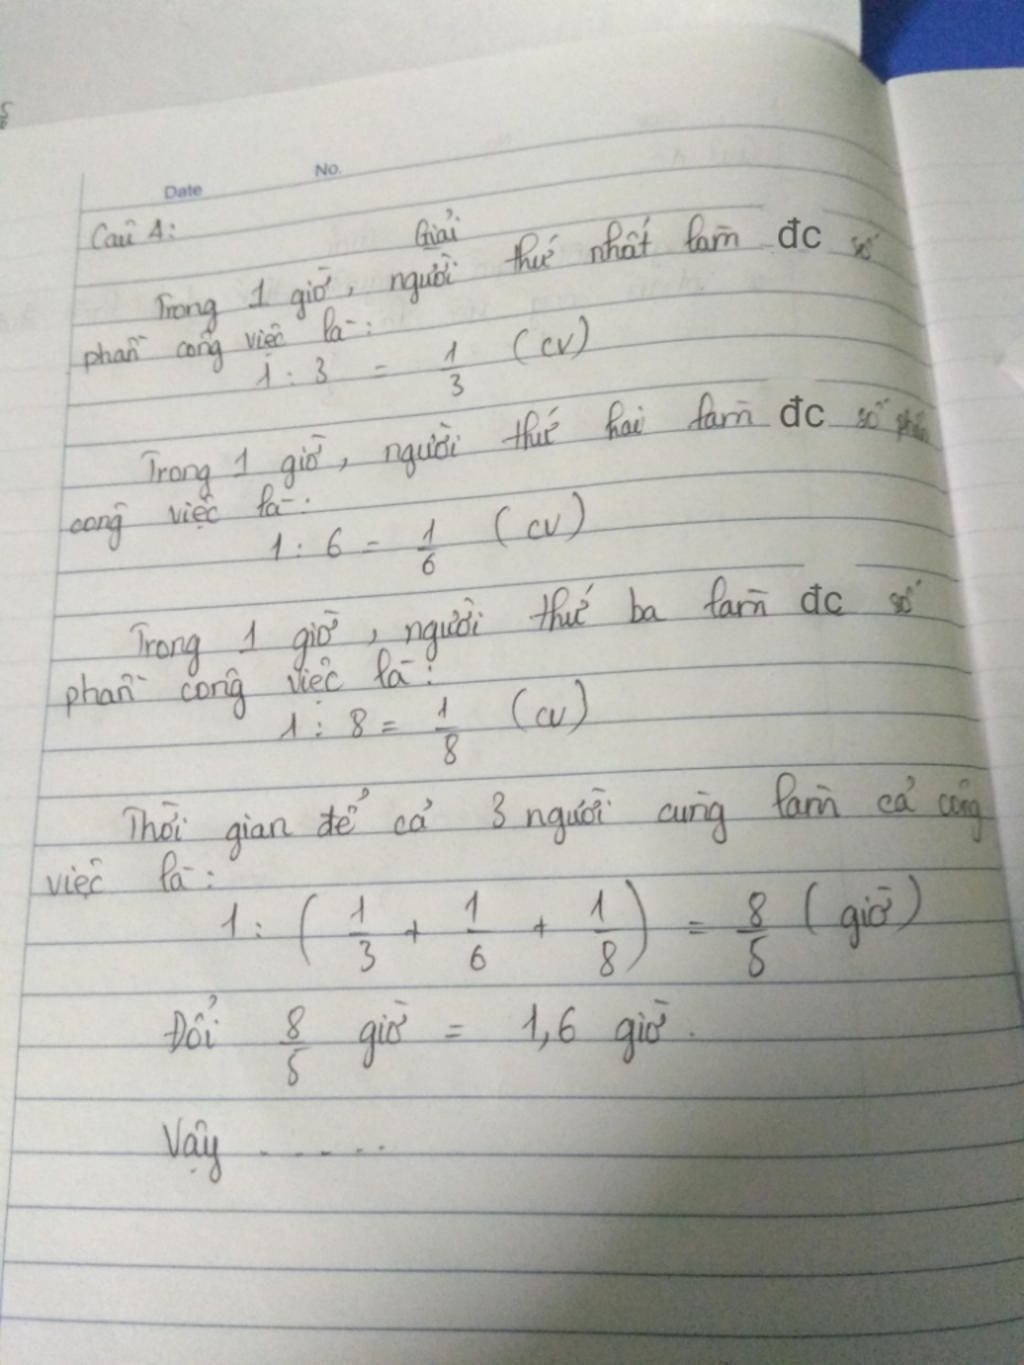 Date No.
Câu 4: Giải
Trong 1 giờ, người thứ nhất làm đc số
phần công việc là:
1 : 3 = 1/3 (cv)
Trong 1 giờ, người thứ hai làm đc số phần
công việc là:
1 : 6 = 1/6 (cv)
Trong 1 giờ, người thứ ba làm đc số
phần công việc là:
1 : 8 = 1/8 (cv)
Thời gian để cả 3 người cùng làm cả công
việc là:
1 : (1/3 + 1/6 + 1/8) = 8/5 (giờ)
Đổi 8/5 giờ = 1,6 giờ.
Vậy ......